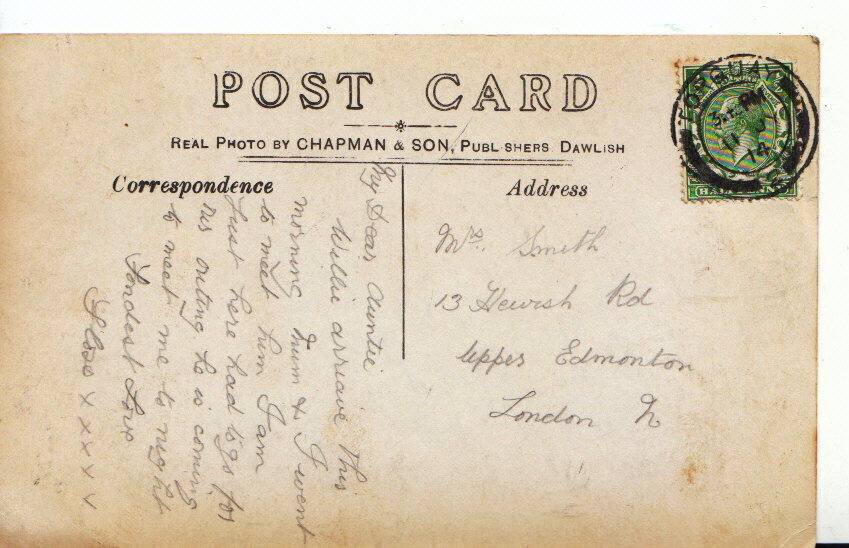 POST CARD
REAL PHOTO BY CHAPMAN & SON, PUBLISHERS DAWLISH
Correspondence
Address
My Dear Auntie
Willie arriave this
morning Mum & I went
to meet him I am
Just here had to go for
his outing he is coming
to meet me to night
Fondest Love
x x x x
Mrs. Smith
13 Hewish Rd
Upper Edmonton
London N
TORQUAY
PM
14
HALF PENNY